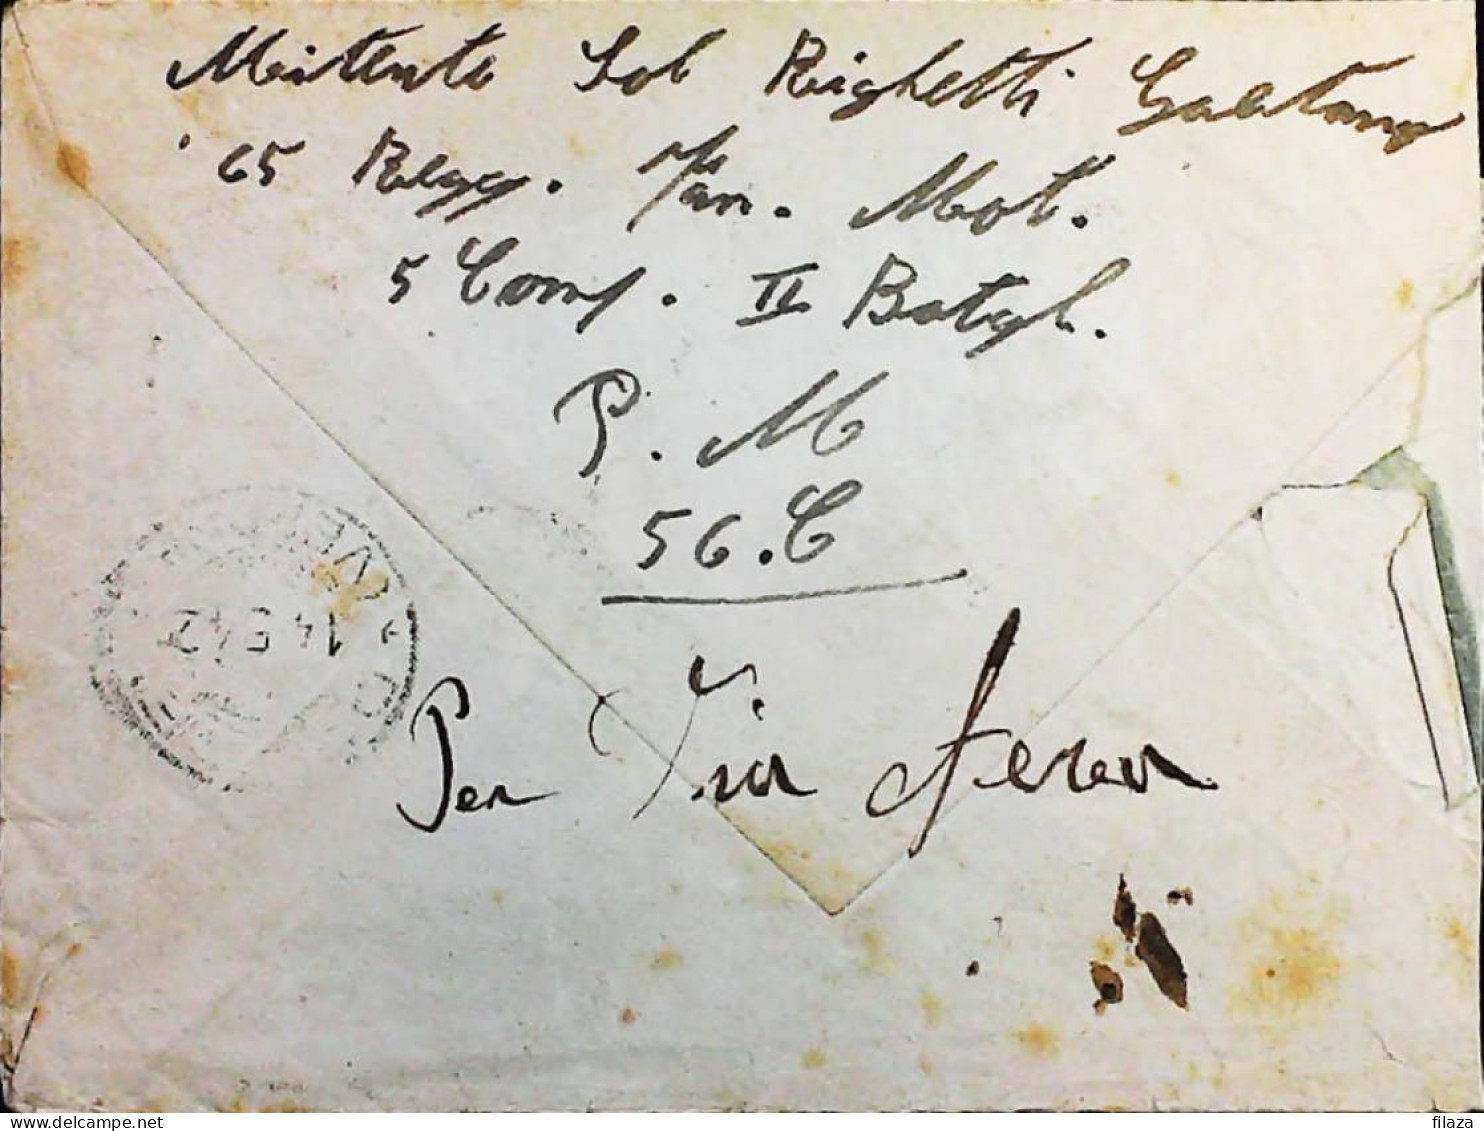 Mitente Sol Righetti Gaetano
65 Regg. Fan. Mot.
5 Comp. II Batgl.
P. M
56. C
Per Via Aerea
14.5.42
delcampe.net
filaza